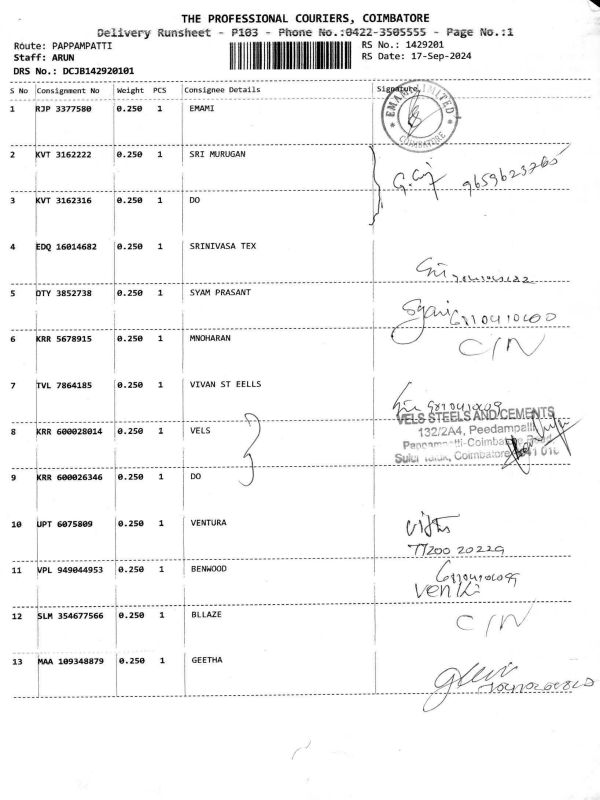 THE PROFESSIONAL COURIERS, COIMBATORE
Delivery Runsheet - P103 - Phone No.:0422-3505555 - Page No.:1
Route: PAPPAMPATTI RS No.: 1429201
Staff: ARUN RS Date: 17-Sep-2024
DRS No.: DCJB142920101
S No Consignment No Weight PCS Consignee Details Signature
1 RJP 3377580 0.250 1 EMAMI
EMAMI LIMITED
COIMBATORE
2 KVT 3162222 0.250 1 SRI MURUGAN
9659623765
3 KVT 3162316 0.250 1 DO
4 EDQ 16014682 0.250 1 SRINIVASA TEX
5 OTY 3852738 0.250 1 SYAM PRASANT
6 KRR 5678915 0.250 1 MNOHARAN C/N
7 TVL 7864185 0.250 1 VIVAN ST EELLS
VELS STEELS AND CEMENTS
8 KRR 600028014 0.250 1 VELS 132/2A4, Peedampalli
Pappampatti-Coimbatore Road
Sulur Taluk, Coimbatore
9 KRR 600026346 0.250 1 DO
10 UPT 6075809 0.250 1 VENTURA
77200 20229
11 VPL 949044953 0.250 1 BENWOOD
Venki
12 SLM 354677566 0.250 1 BLLAZE C/N
13 MAA 109348879 0.250 1 GEETHA